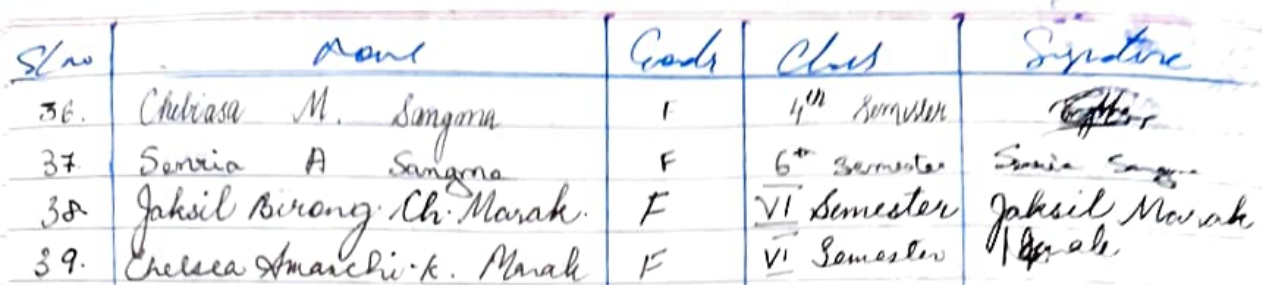 Sl no Name Gender Class Signature
36. Chebiasa M. Sangma F 4th Semester
37 Senria A Sangma F 6th Semester Senria Sangma
38 Jaksil Birong Ch. Marak. F VI Semester Jaksil Marak
39. Chelsea Amanchi K. Marak F VI Semester Marak